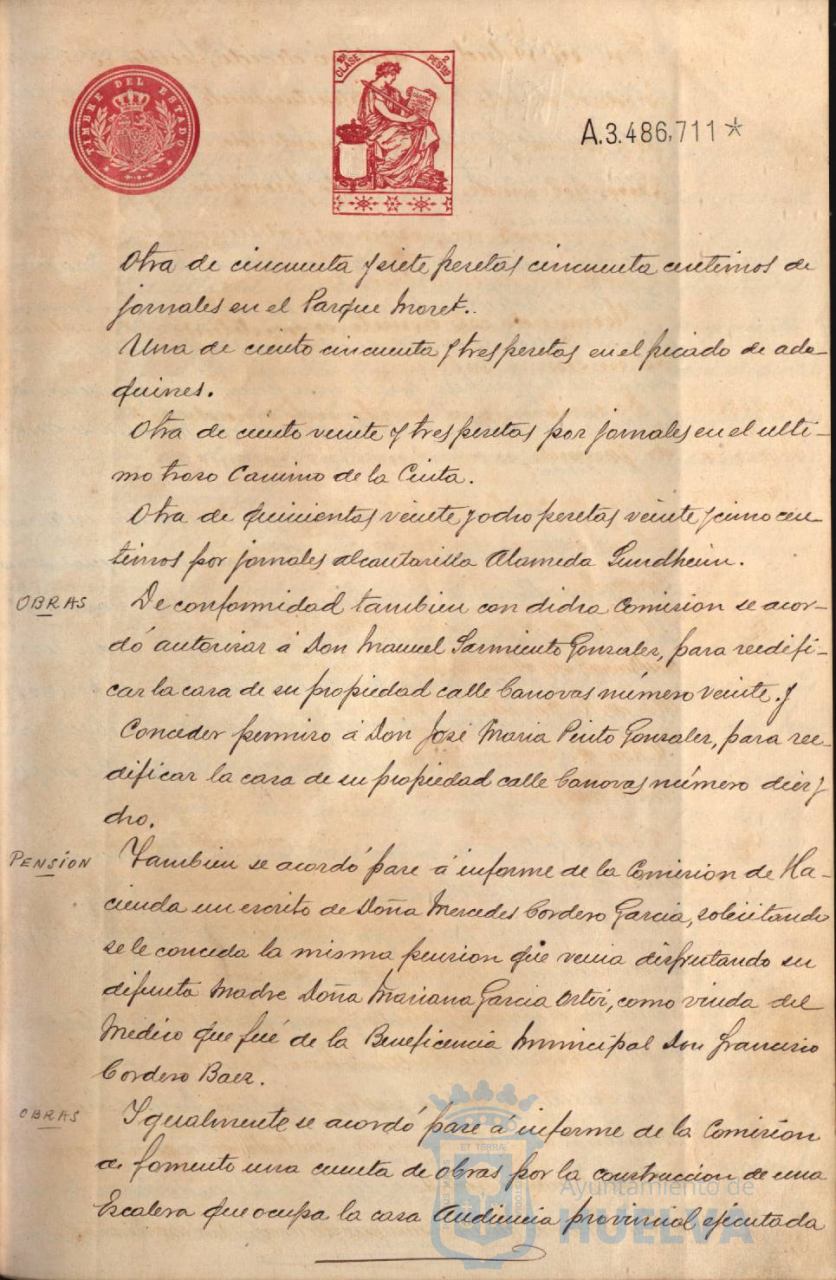 TIMBRE DEL ESTADO
10ª CLASE
2 PESTAS
A.3.486,711*
Otra de cincuenta y siete pesetas cincuenta centimos de
jornales en el Parque Moret..
Una de ciento cincuenta y tres pesetas en el picado de ado-
quines.
Otra de ciento veinte y tres pesetas por jornales en el ulti-
mo troso Camino de la Cinta.
Otra de quinientas veinte y ocho pesetas veinte y cinco cen-
timos por jornales alcantarilla Alameda Sundheim.
OBRAS
De conformidad tambien con dicha Comision se acor-
dó autorizar á Don Manuel Sarmiento Gonzalez, para reedifi-
car la casa de su propiedad calle Canovas número veinte. y
Conceder permiso á Don José Maria Pinto Gonzalez, para ree-
dificar la casa de su propiedad calle Canovas número diez y
cho.
PENSIÓN
Tambien se acordó pase á informe de la Comision de Ha-
cienda un escrito de Doña Mercedes Cordero Garcia, solicitando
se le conceda la misma pension que venia disfrutando su
difunta Madre Doña Mariana Garcia Ortiz, como viuda del
Medico que fué de la Beneficencia Municipal Don Francisco
Cordero Baez.
OBRAS
Igualmente se acordó pase á informe de la Comision
de fomento una cuenta de obras por la construccion de una
Escalera que ocupa la casa Audiencia provincial, ejecutada
Ayuntamiento de
HUELVA